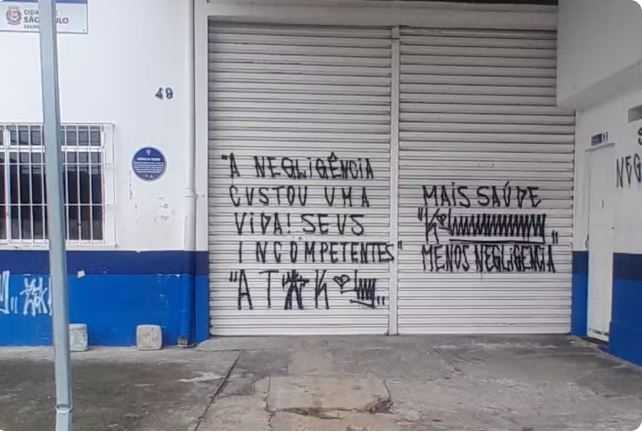 CIDADE DE
SÃO PAULO
49
"A NEGLIGÊNCIA
CUSTOU UMA
VIDA! SEUS
INCOMPETENTES"
"ATAK
MAIS SAÚDE
MENOS NEGLIGENCIA
NEG